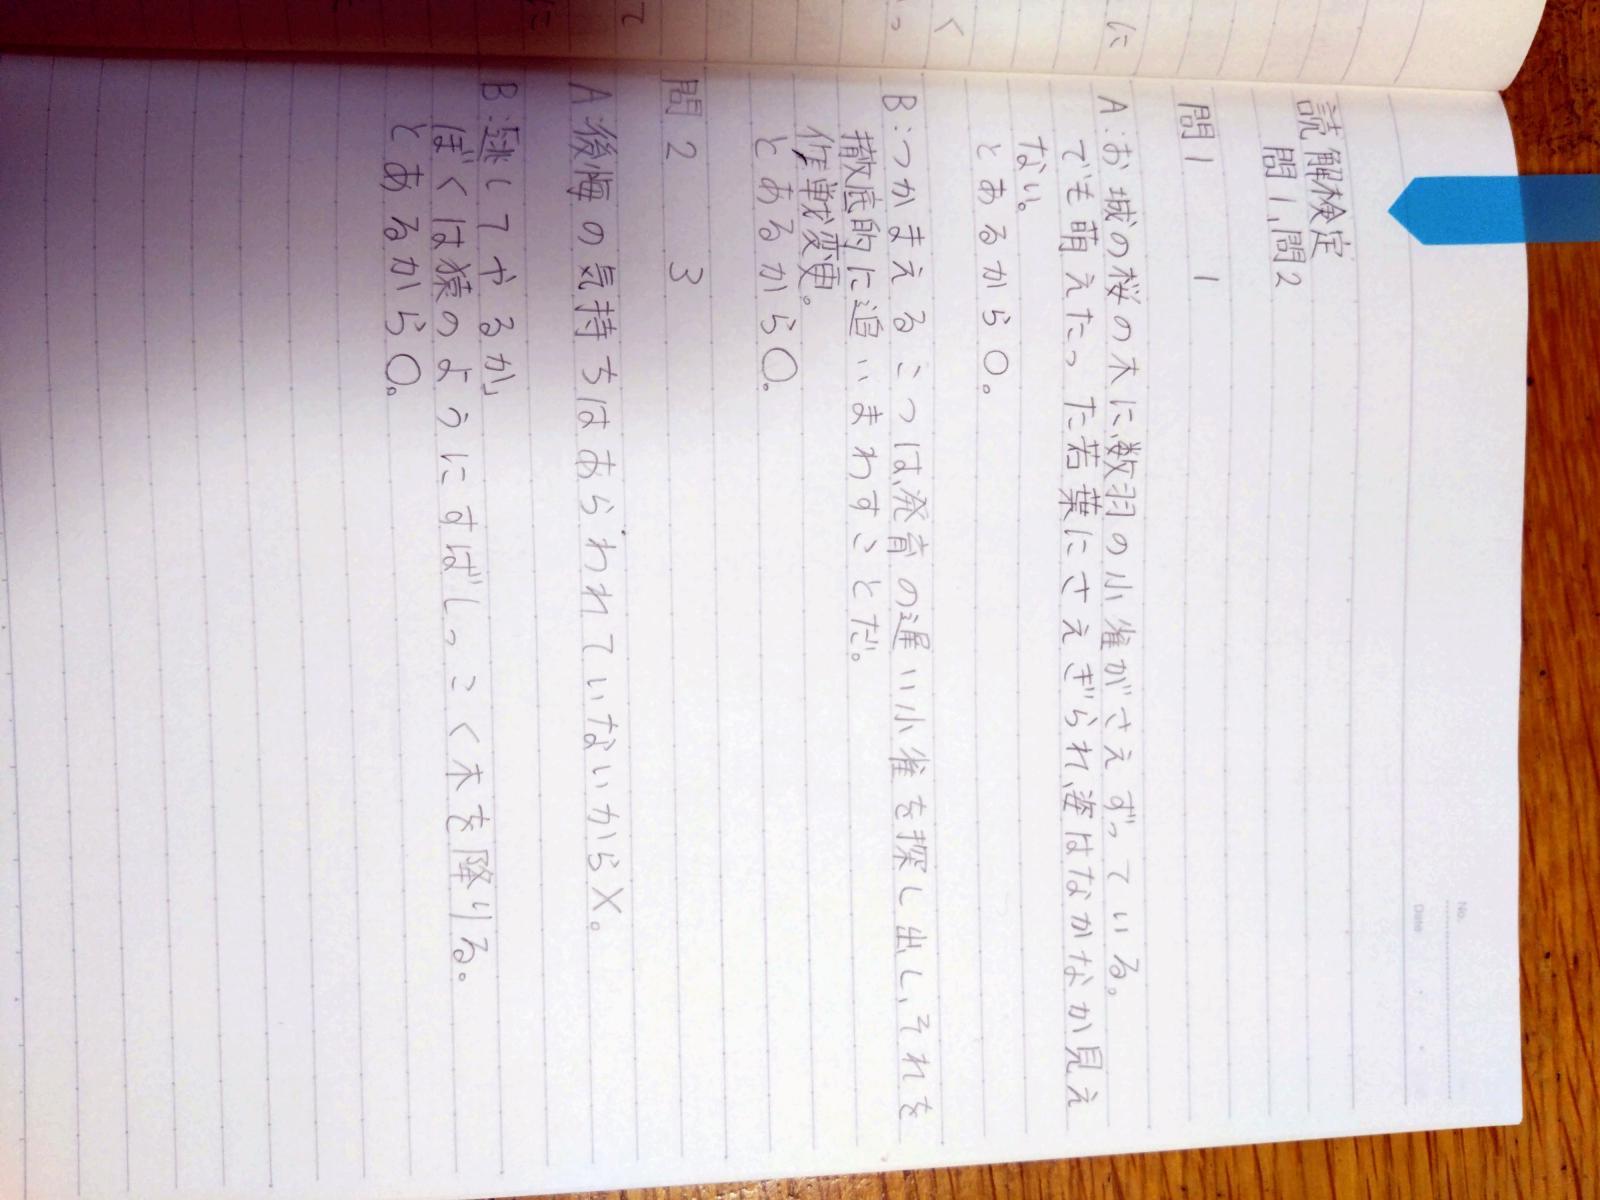 読解検定
問1、問2
問1 1
A:お城の桜の木に、数羽の小雀がさえずっている。
でも萌えたった若葉にさえぎられ、姿はなかなか見え
ない。
とあるから○。
B:つかまえるこつは、発育の遅い小雀を探し出し、それを
徹底的に追いまわすことだ。
作戦変更。
とあるから○。
問2 3
A:後悔の気持ちはあらわれていないから×。
B:逃してやるか」
ぼくは猿のようにすばしっこく木を降りる。
とあるから○。
No.
Date